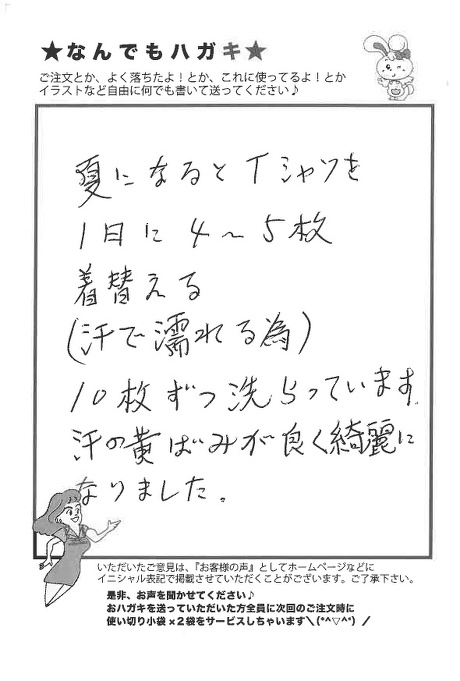 ★なんでもハガキ★
ご注文とか、よく落ちたよ！とか、これに使ってるよ！とか
イラストなど自由に何でも書いて送ってください♪
夏になるとTシャツを
1日に4～5枚
着替える
(汗で濡れる為)
10枚ずつ洗らっています。
汗の黄ばみが良く綺麗に
なりました。
いただいたご意見は、『お客様の声』としてホームページなどに
イニシャル表記で掲載させていただくことがございます。ご了承下さい。
是非、お声を聞かせてください♪
おハガキを送っていただいた方全員に次回のご注文時に
使い切り小袋×2袋をサービスしちゃいます＼(*^▽^*)／